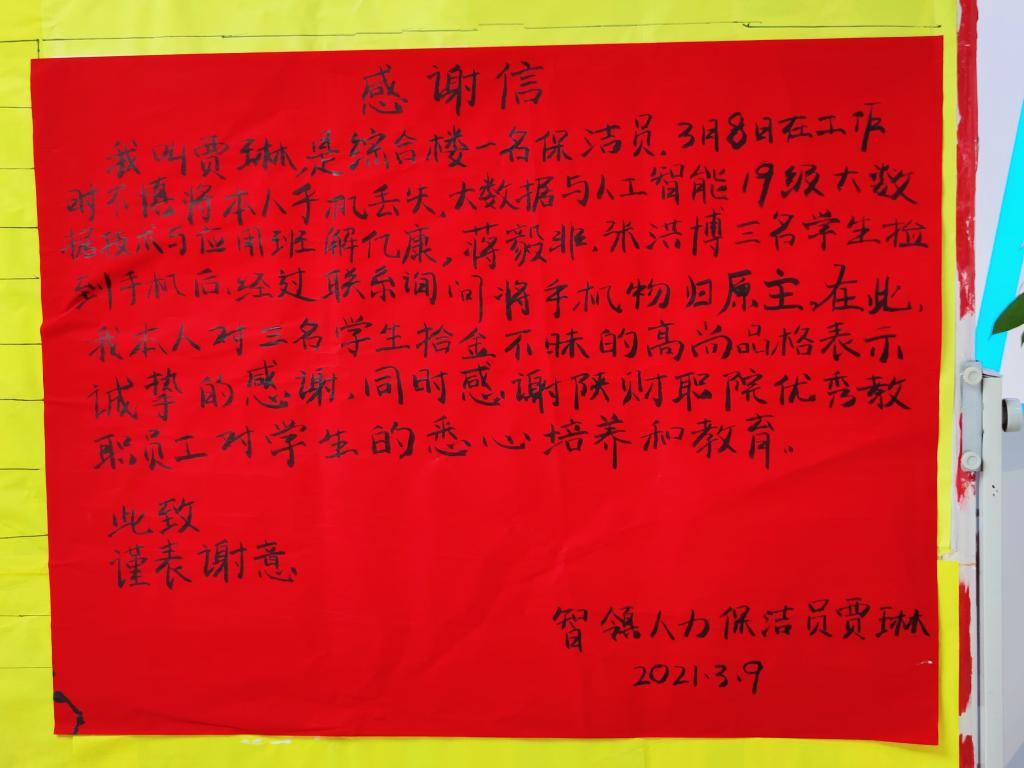 感谢信
我叫贾琳,是综合楼一名保洁员.3月8日在工作
时不慎将本人手机丢失.大数据与人工智能19级大数
据技术与应用班解亿康,蒋毅非.张洪博三名学生捡
到手机后.经过联系询问将手机物归原主.在此,
我本人对三名学生拾金不昧的高尚品格表示
诚挚的感谢.同时感谢陕财职院优秀教
职员工对学生的悉心培养和教育。
此致
谨表谢意
智领人力保洁员贾琳
2021.3.9